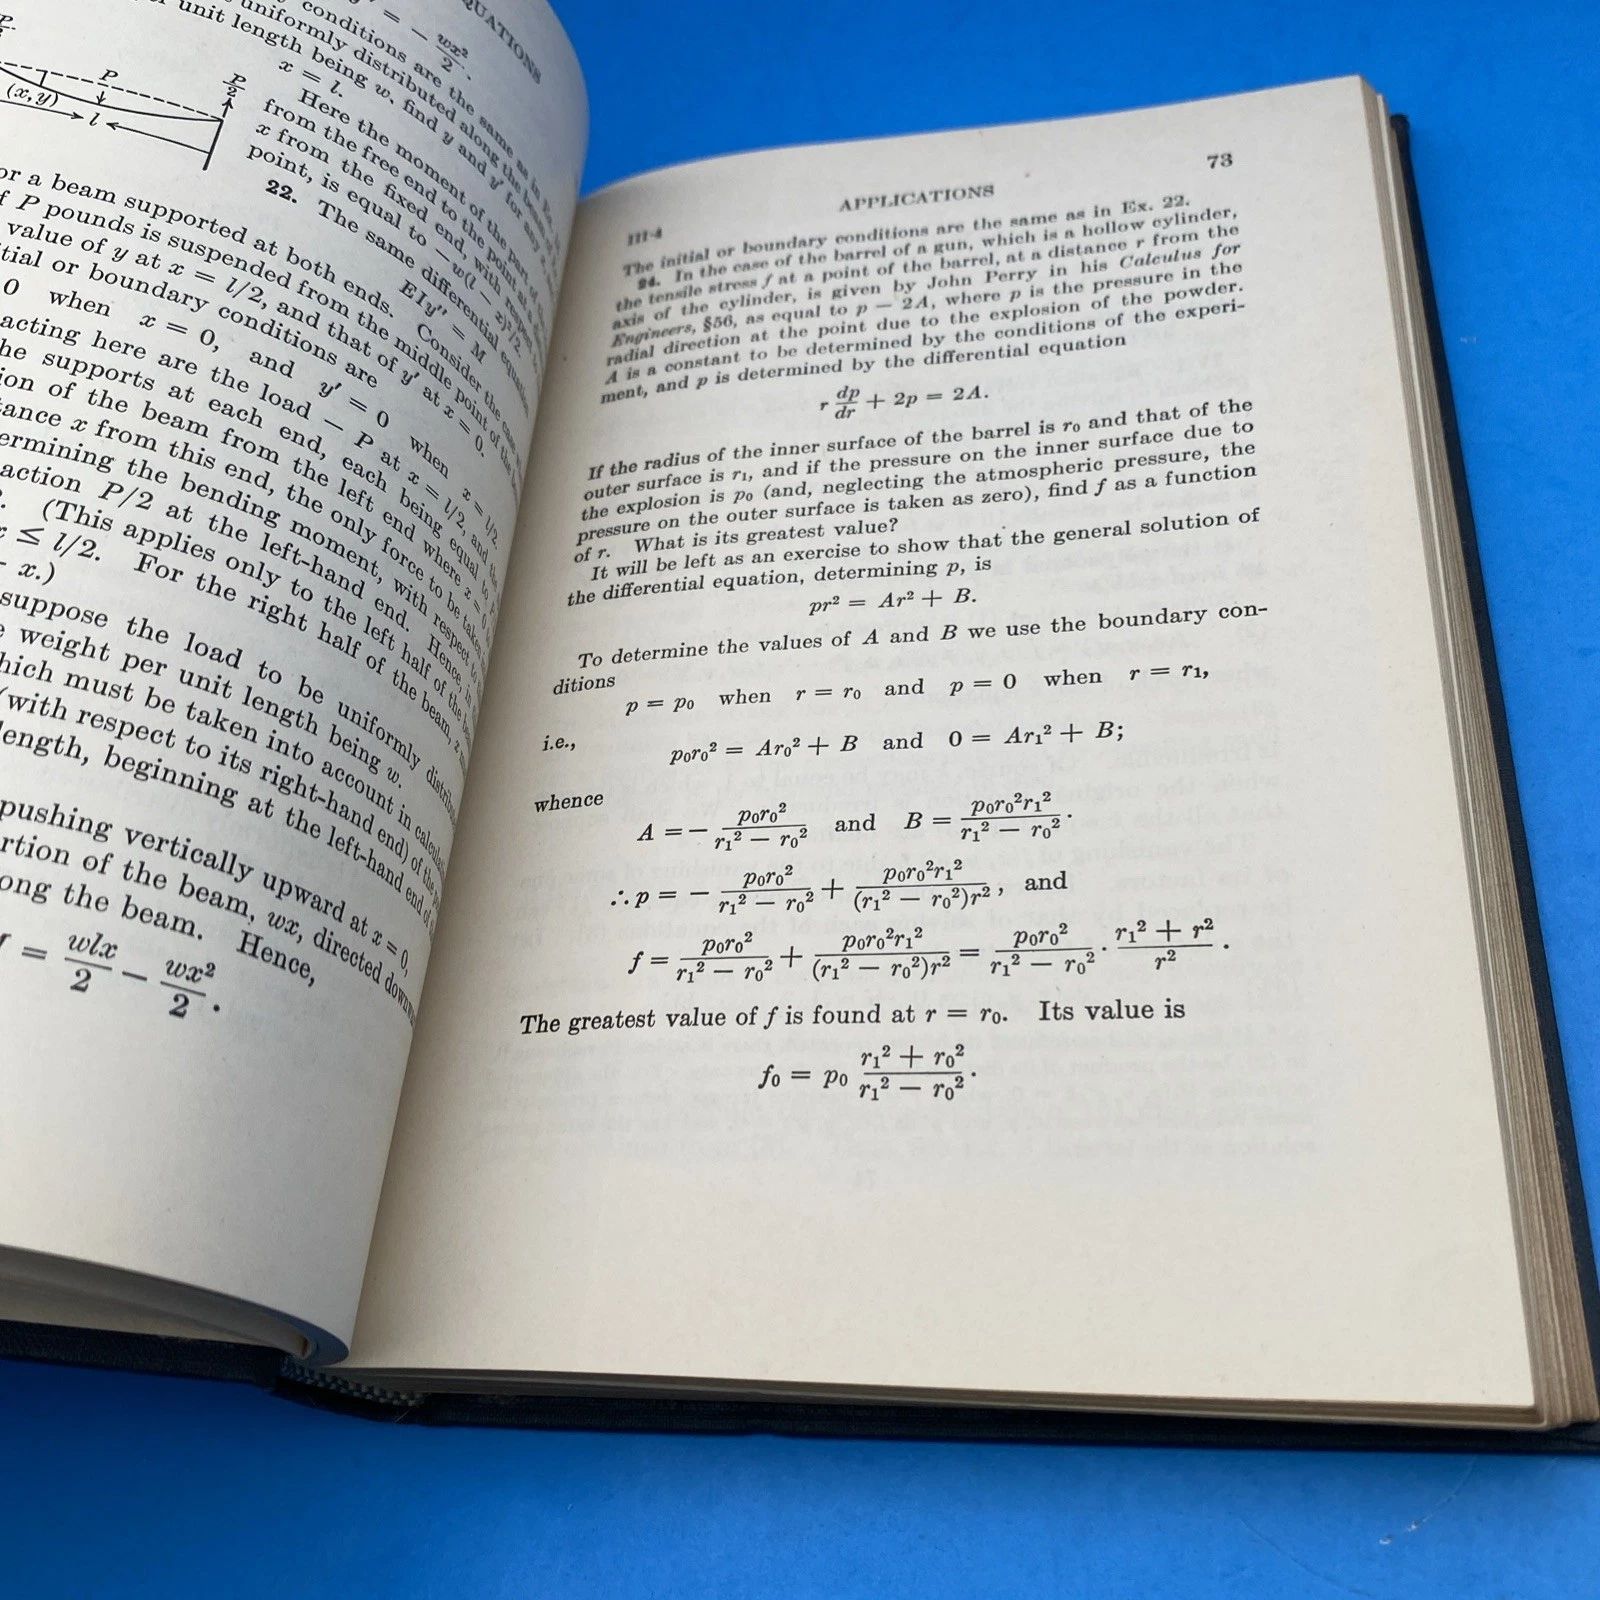 QUATIONS
y' = - wx²/2.
conditions are the same as in
uniformly distributed along the beam,
unit length being w, find y and y' for any
x = l.
Here the moment of the part of the
from the free end to the point at a
x from the fixed end, with respect
point, is equal to -w(l - x)²/2.
22. The same differential equation
EIy'' = M
P/2
P
P/2
(x, y)
l
or a beam supported at both ends. Consider the case
f P pounds is suspended from the middle point of the
value of y at x = l/2, and that of y' at x = 0.
itial or boundary conditions are
0 when x = 0, and y' = 0 when x = l/2.
acting here are the load - P at x = l/2, and the
he supports at each end, each being equal to
ion of the beam from the left end where x = 0
tance x from this end, the only force to be taken
ermining the bending moment, with respect to
action P/2 at the left-hand end. Hence, in
(This applies only to the left half of the beam
x ≤ l/2. For the right half of the beam,
- x.)
suppose the load to be uniformly
e weight per unit length being w.
hich must be taken into account in
(with respect to its right-hand end) of the
length, beginning at the left-hand end of
pushing vertically upward at x = 0,
rtion of the beam, wx, directed
ong the beam. Hence,
= wlx/2 - wx²/2.
73
APPLICATIONS
III-4
The initial or boundary conditions are the same as in Ex. 22.
24. In the case of the barrel of a gun, which is a hollow cylinder,
the tensile stress f at a point of the barrel, at a distance r from the
axis of the cylinder, is given by John Perry in his Calculus for
Engineers, §56, as equal to p - 2A, where p is the pressure in the
radial direction at the point due to the explosion of the powder.
A is a constant to be determined by the conditions of the experi-
ment, and p is determined by the differential equation
r dp/dr + 2p = 2A.
If the radius of the inner surface of the barrel is r₀ and that of the
outer surface is r₁, and if the pressure on the inner surface due to
the explosion is p₀ (and, neglecting the atmospheric pressure, the
pressure on the outer surface is taken as zero), find f as a function
of r. What is its greatest value?
It will be left as an exercise to show that the general solution of
the differential equation, determining p, is
pr² = Ar² + B.
To determine the values of A and B we use the boundary con-
ditions
p = p₀ when r = r₀ and p = 0 when r = r₁,
i.e.,
p₀r₀² = Ar₀² + B and 0 = Ar₁² + B;
whence
A = - p₀r₀²/(r₁² - r₀²) and B = p₀r₀²r₁²/(r₁² - r₀²).
∴ p = - p₀r₀²/(r₁² - r₀²) + p₀r₀²r₁²/(r₁² - r₀²)r², and
f = p₀r₀²/(r₁² - r₀²) + p₀r₀²r₁²/(r₁² - r₀²)r² = p₀r₀²/(r₁² - r₀²) · (r₁² + r²)/r².
The greatest value of f is found at r = r₀. Its value is
f₀ = p₀ (r₁² + r₀²)/(r₁² - r₀²).